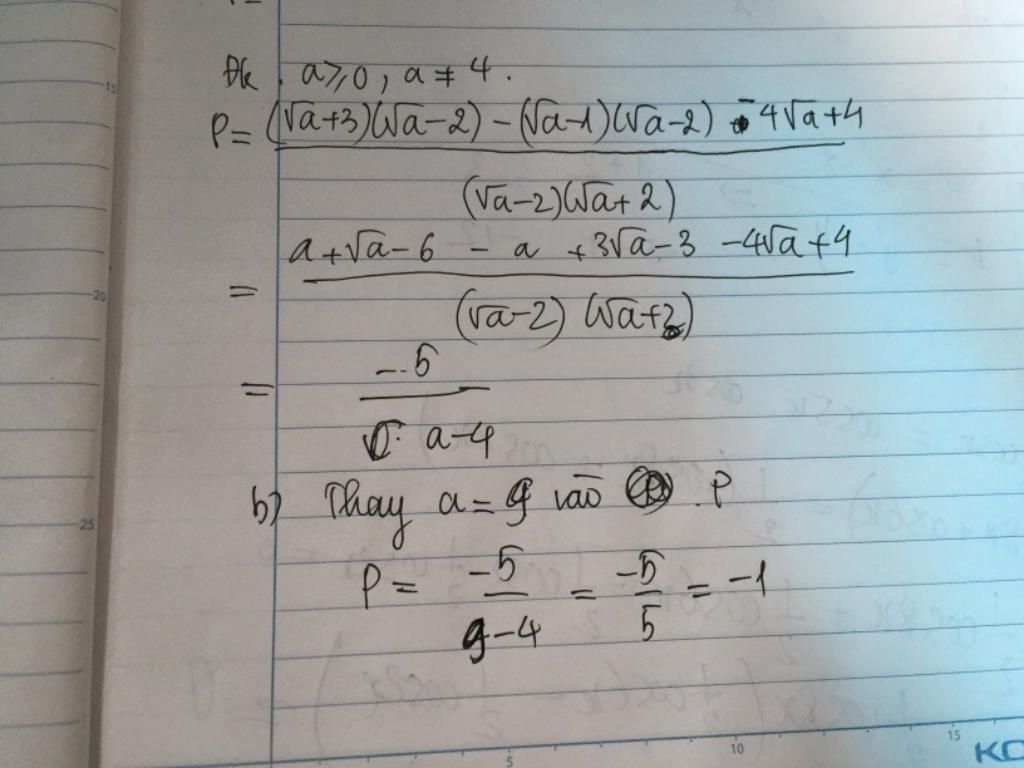 Đk. a ≥ 0, a ≠ 4.
P = (√a+3)(√a-2) - (√a-1)(√a-2) - 4√a+4
(√a-2)(√a+2)
a+√a-6 - a +3√a-3 -4√a+4
=
(√a-2) (√a+2)
= -5
a-4
b) Thay a = 9 vào P
P = -5 / 9-4 = -5 / 5 = -1
15
20
25
5
10
15
KO